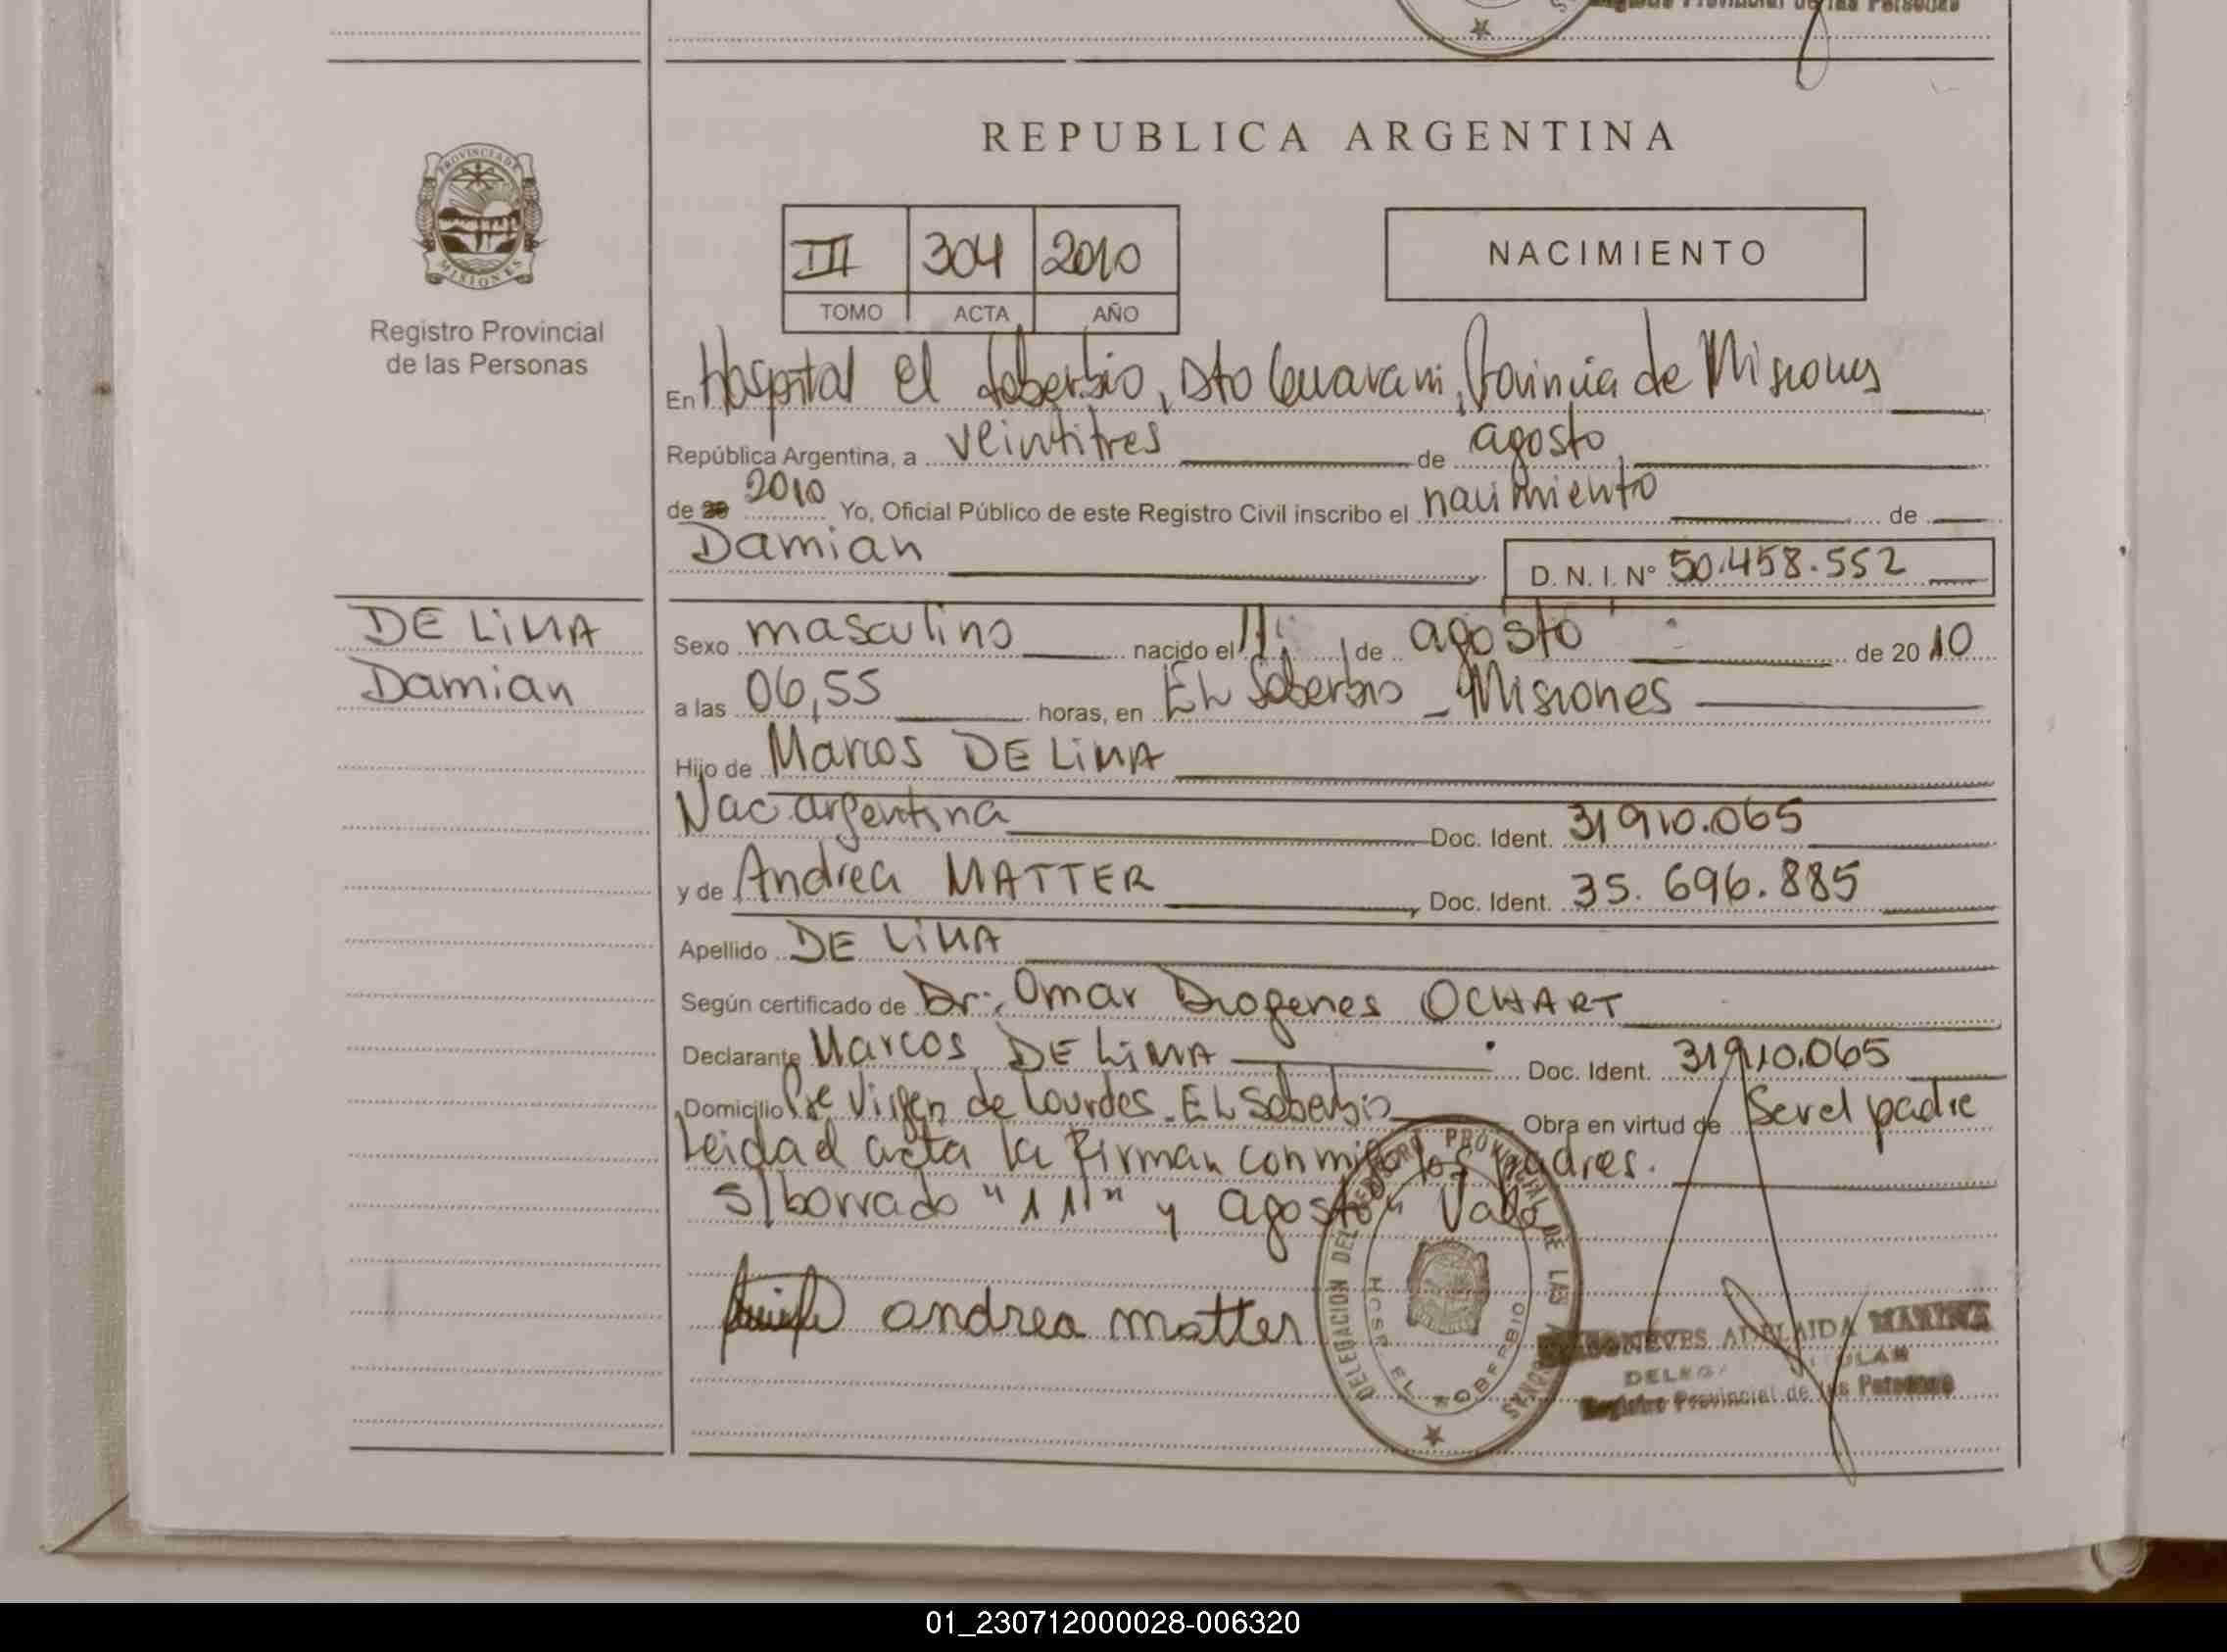 Registro Provincial de las Personas
REPUBLICA ARGENTINA
PROVINCIA DE MISIONES
Registro Provincial
de las Personas
III 304 2010
TOMO ACTA AÑO
NACIMIENTO
En Hospital El Soberbio, Dto Guarani, Provincia de Misiones
República Argentina, a veintitres de agosto
de 20 2010 Yo, Oficial Público de este Registro Civil inscribo el nacimiento de
Damian
D. N. I. Nº 50.458.552
DE LIMA
Damian
Sexo masculino nacido el 11 de agosto de 2010
a las 06,55 horas, en EL Soberbio - Misiones
Hijo de Marcos DE LIMA
Nac argentina Doc. Ident. 31910.065
y de Andrea MATTER Doc. Ident. 35.696.885
Apellido DE LIMA
Según certificado de Dr. Omar Diogenes OCHART
Declarante Marcos DE LIMA Doc. Ident. 31910.065
Domicilio Virgen de Lourdes - EL Soberbio Obra en virtud de Ser el padre
Leida el acta la firman conmigo los padres.
S/borrado "11" y agosto" Vale
andrea matter
DELEGACION DEL REGISTRO PROVINCIAL DE LAS PERSONAS
EL SOBERBIO
ADELAIDA MARINA
TITULAR
Registro Provincial de las Personas
01_230712000028-006320